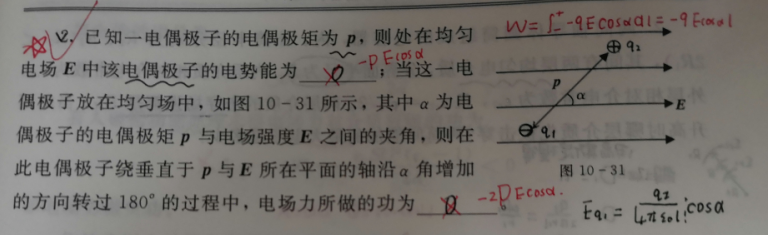 2. 已知一电偶极子的电偶极矩为 p, 则处在均匀
电场 E 中该电偶极子的电势能为 0 -pEcosα ; 当这一电
偶极子放在均匀场中, 如图 10-31 所示, 其中 α 为电
偶极子的电偶极矩 p 与电场强度 E 之间的夹角, 则在
此电偶极子绕垂直于 p 与 E 所在平面的轴沿 α 角增加
的方向转过 180° 的过程中, 电场力所做的功为 0 -2pEcosα.
W=∫₋⁺ -qEcosαdl = -qEcosαl
⊕ q₂
p
α
E
⊖ q₁
图 10-31
Eq₁ = q₂/4πε₀l² cosα